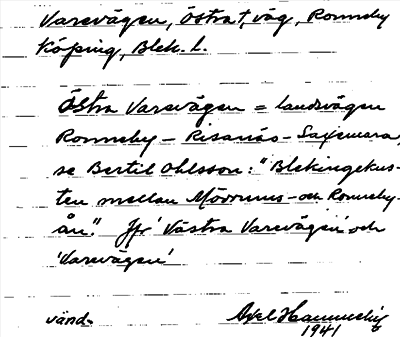 Varsvägen, Östra †, väg, Ronneby
Köping, Blek. l.
Östra Varsvägen = landsvägen
Ronneby – Risanäs – Saxemara,
se Bertil Ohlsson: "Blekingekus-
ten mellan Mörrums- och Ronneby-
ån." Jfr 'Västra Varsvägen' och
'Varsvägen'
vänd.
Axel
1941